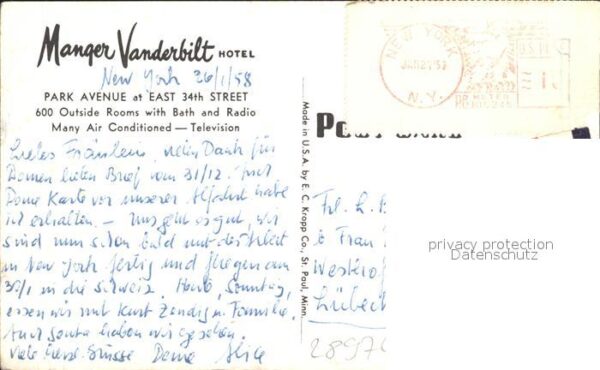 Manger Vanderbilt HOTEL
New York 26/1/58
PARK AVENUE at EAST 34th STREET
600 Outside Rooms with Bath and Radio
Many Air Conditioned — Television
Liebes Fräulein, vielen Dank für
Deinen lieben Brief vom 31/12. Auch
Deine Karte vor unserer Abfahrt habe
ich erhalten - Uns geht es gut, wir
sind nun schon bald mit der Arbeit
in New York fertig und fliegen am
30/1 in die Schweiz. Heute, Sonntag,
essen wir mit Kurt u. Familie.
Auch haben wir gesehen.
Viele herzl. Grüsse Deine Alice
Made in U.S.A. by E. C. Kropp Co., St. Paul, Minn.
NEW YORK
JAN 27 58
N.Y.
Frl. L. B
c/o Frau
Lübeck
privacy protection
Datenschutz